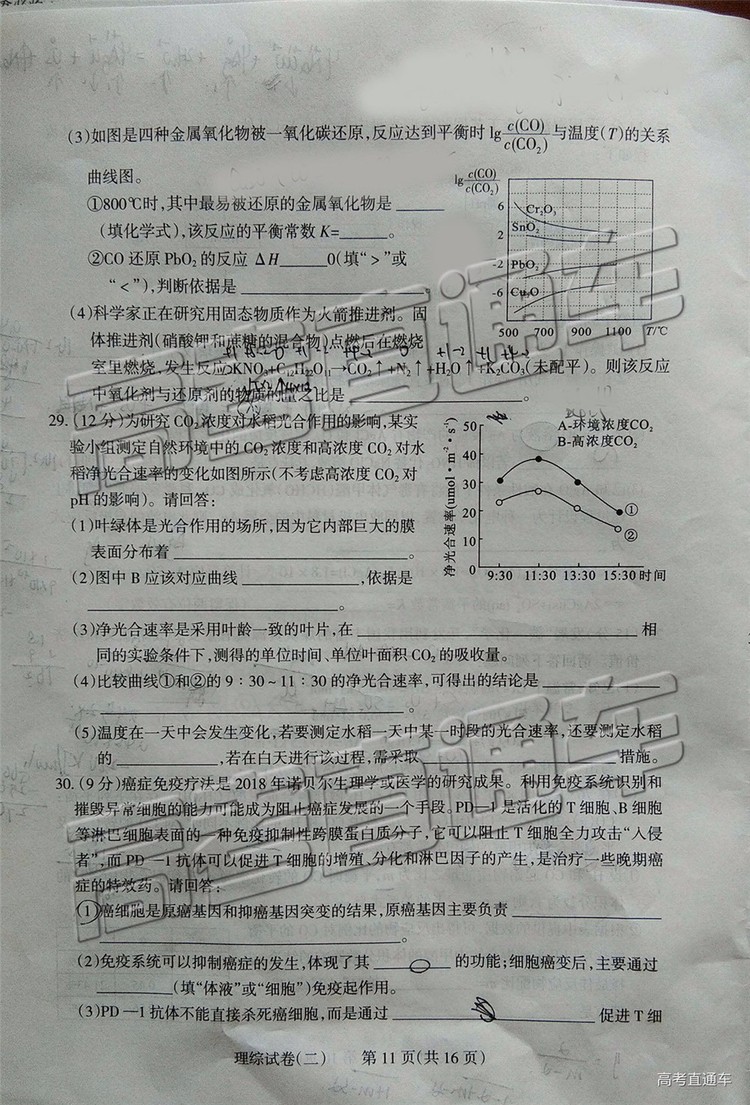 (3)如图是四种金属氧化物被一氧化碳还原,反应达到平衡时lg c(CO)/c(CO₂) 与温度(T)的关系
曲线图。
①800℃时,其中最易被还原的金属氧化物是______
(填化学式),该反应的平衡常数K=______。
②CO 还原 PbO₂ 的反应 ΔH______0(填“>”或
“<”),判断依据是______。
lg c(CO)/c(CO₂)
6
2
-2
-6
Cr₂O₃
SnO₂
PbO₂
Cu₂O
500 700 900 1100 T/℃
(4)科学家正在研究用固态物质作为火箭推进剂。固
体推进剂(硝酸钾和蔗糖的混合物)点燃后在燃烧
室里燃烧,发生反应KNO₃+C₁₂H₂₂O₁₁→CO₂↑+N₂↑+H₂O↑+K₂CO₃(未配平)。则该反应
中氧化剂与还原剂的物质的量之比是______。
29.(12分)为研究CO₂浓度对水稻光合作用的影响,某实
验小组测定自然环境中的CO₂浓度和高浓度CO₂对水
稻净光合速率的变化如图所示(不考虑高浓度CO₂对
pH的影响)。请回答:
(1)叶绿体是光合作用的场所,因为它内部巨大的膜
表面分布着______。
(2)图中B应该对应曲线______,依据是
______。
净光合速率(umol·m⁻²·s⁻¹)
50
40
30
20
10
0
A-环境浓度CO₂
B-高浓度CO₂
①
②
9:30 11:30 13:30 15:30 时间
(3)净光合速率是采用叶龄一致的叶片,在______相
同的实验条件下,测得的单位时间、单位叶面积CO₂的吸收量。
(4)比较曲线①和②的9:30~11:30的净光合速率,可得出的结论是______
______。
(5)温度在一天中会发生变化,若要测定水稻一天中某一时段的光合速率,还要测定水稻
的______,若在白天进行该过程,需采取______措施。
30.(9分)癌症免疫疗法是2018年诺贝尔生理学或医学的研究成果。利用免疫系统识别和
摧毁异常细胞的能力可能成为阻止癌症发展的一个手段。PD—1是活化的T细胞、B细胞
等淋巴细胞表面的一种免疫抑制性跨膜蛋白质分子,它可以阻止T细胞全力攻击“入侵
者”,而PD—1抗体可以促进T细胞的增殖、分化和淋巴因子的产生,是治疗一些晚期癌
症的特效药。请回答:
(1)癌细胞是原癌基因和抑癌基因突变的结果,原癌基因主要负责______
______。
(2)免疫系统可以抑制癌症的发生,体现了其______的功能;细胞癌变后,主要通过
______(填“体液”或“细胞”)免疫起作用。
(3)PD—1抗体不能直接杀死癌细胞,而是通过______促进T细
理综试卷(二) 第11页(共16页)
高考直通车
高考直通车
高考直通车